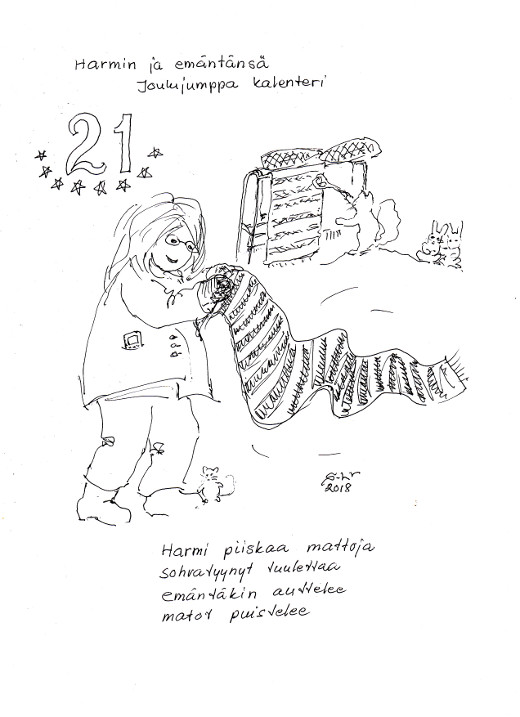 Harmin ja emäntänsä
Joulujumppa kalenteri
21
2018
Harmi piiskaa mattoja
sohvatyynyt tuulettaa
emäntäkin auttelee
matot puistelee